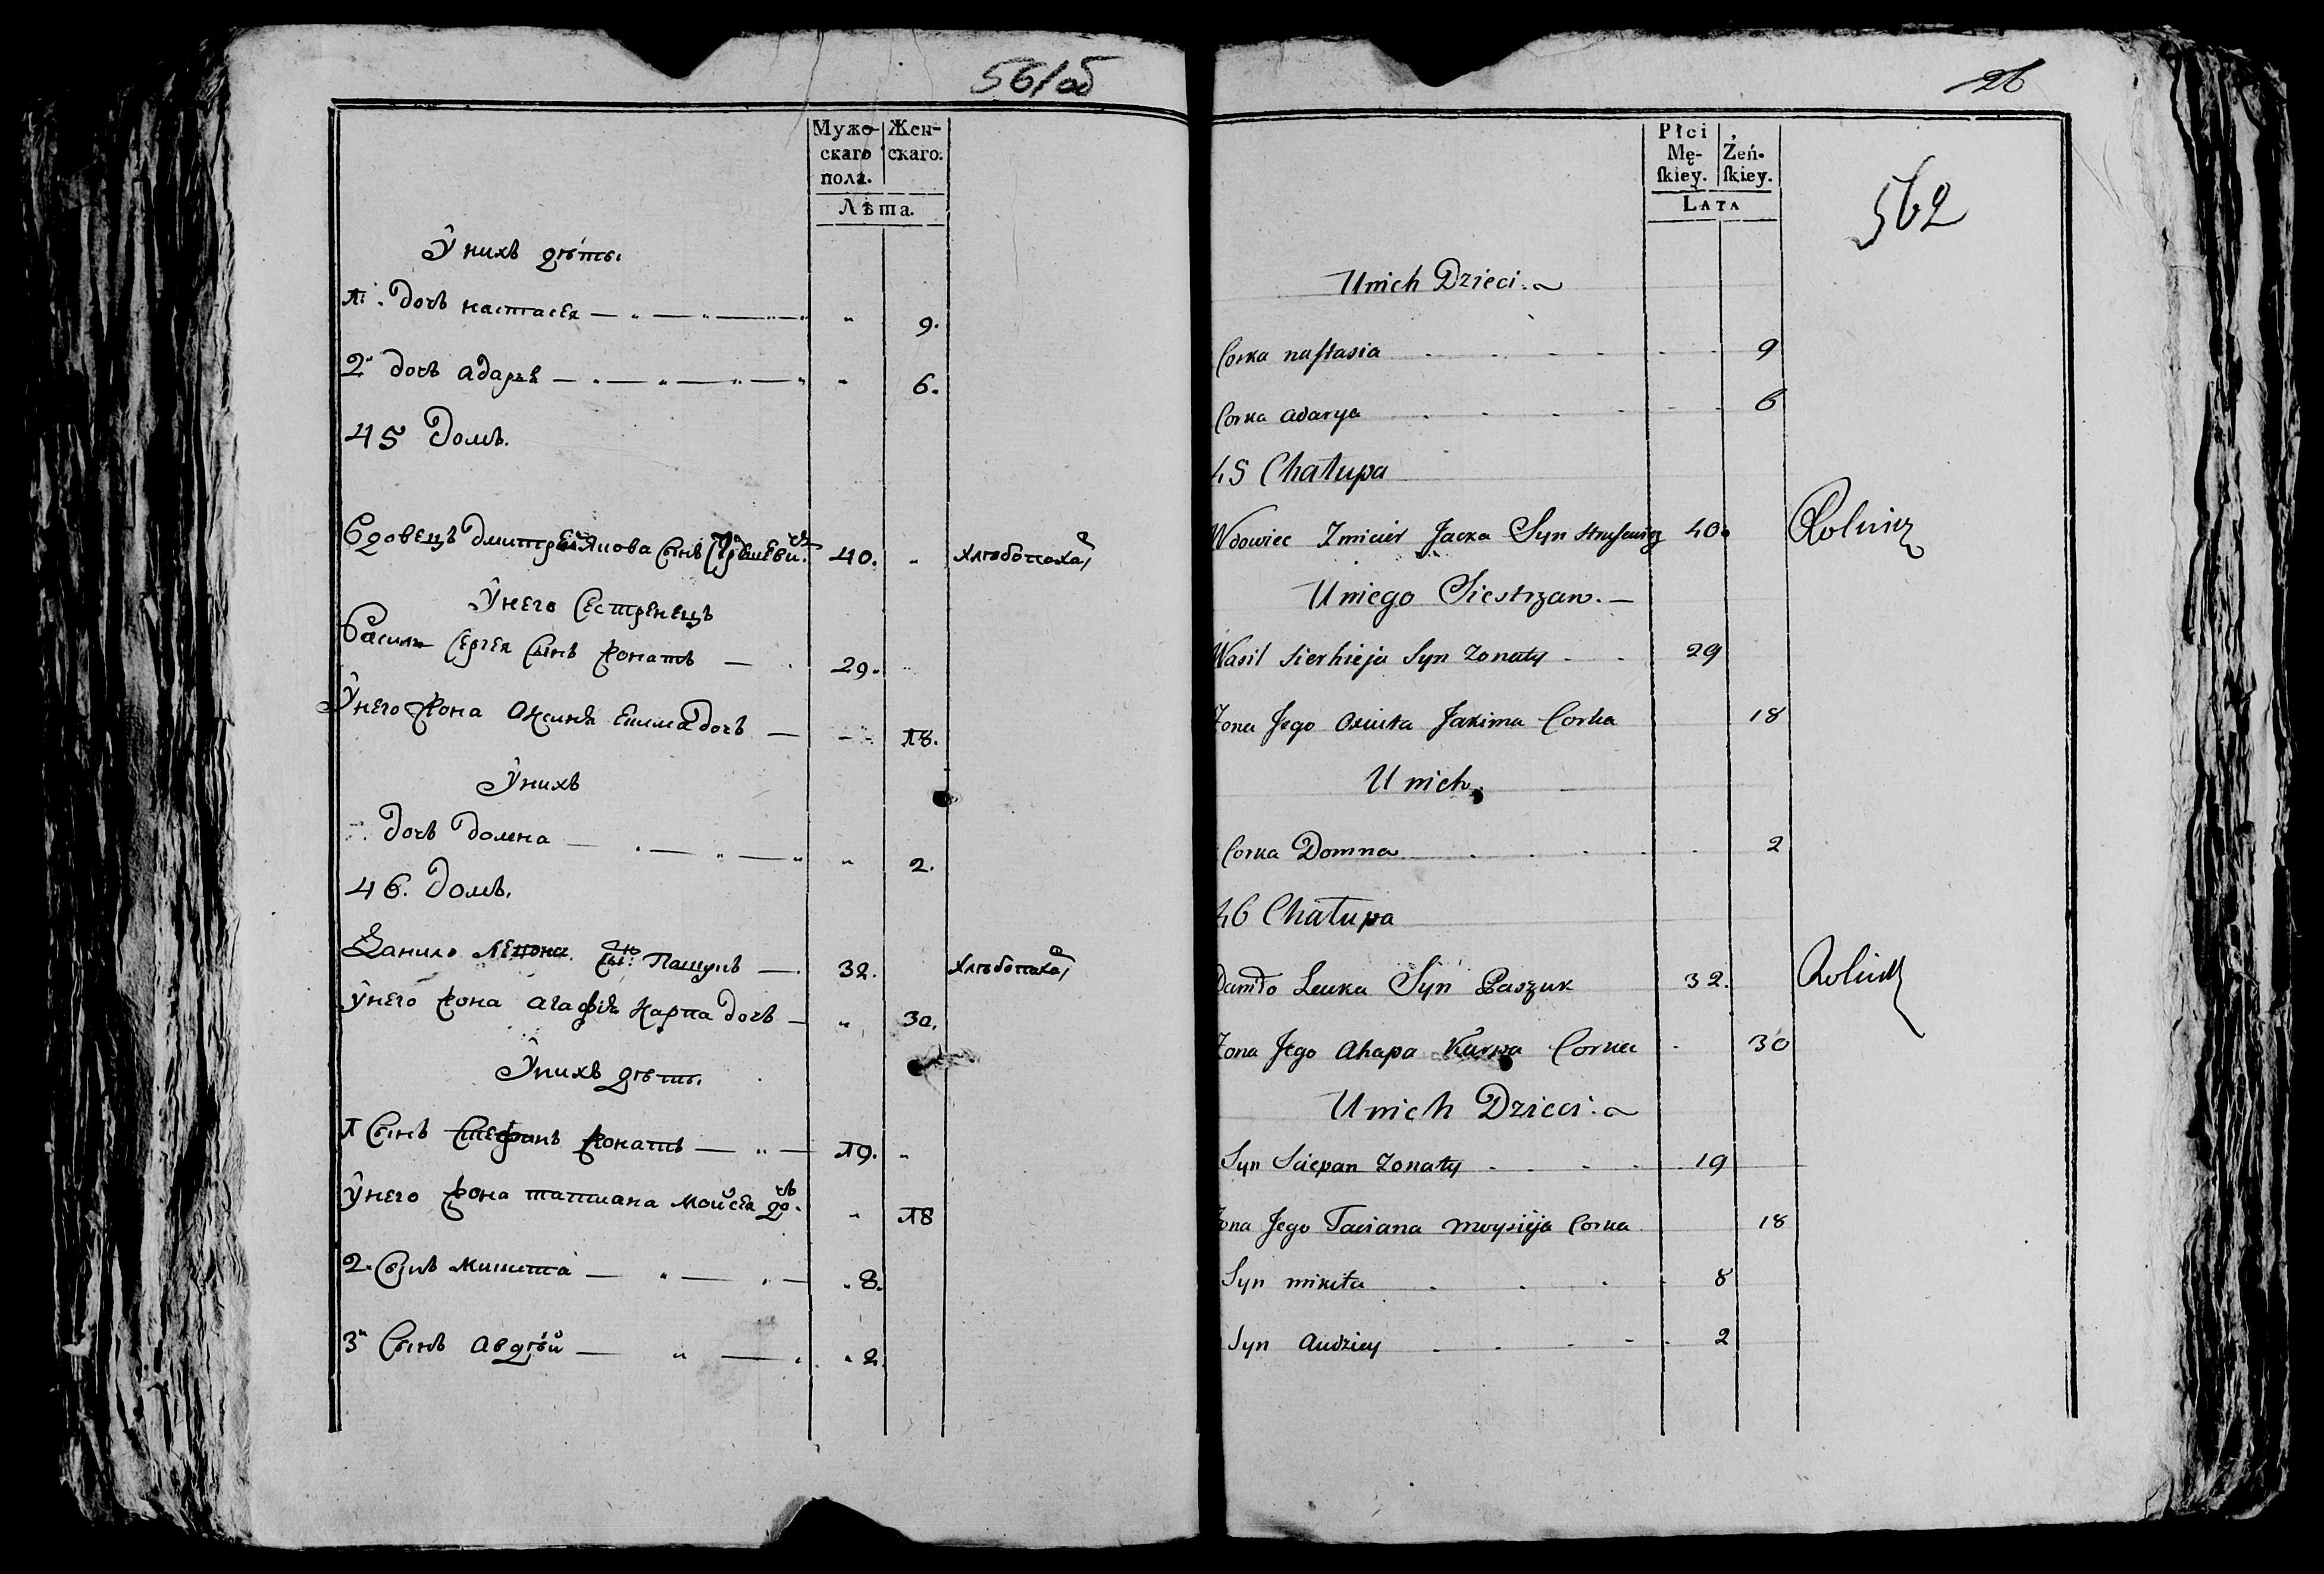 561об
Мужс-
скаго
пола.
Жен-
скаго.
Лѣта.
У нихъ дѣти.
1. дочь настасея 9.
2 дочь адаря 6.
45 Домъ.
Вдовецъ дмитрей сынъ 40. хлебопаха
У него сестренецъ
Василь сергея сынъ жонатъ 29.
У него жона дочь 18.
У нихъ
дочь домна 2.
46. Домъ.
Данило сы: Пашукъ 32. хлебопаха
У него жона агафія карпа дочь 30.
У нихъ дѣти.
1 сынъ стефанъ жонатъ 19.
У него жона татиана мойсея дочь 18
2. сынъ микита 8.
3 сынъ авдѣй 2.
26
562
Płci
Mę-
ſkiey.
Żeń-
ſkiey.
Lata
U nich Dzieci.
Corka naſtasia 9
Corka adarya 6
45 Chałupa
Wdowiec Zmicier Jacka Syn 40 Rolnik
U niego Siestrzan.
Wasil Sierhieja Syn Zonaty 29
Zona Jego Jakima Corka 18
U nich
Corka Domna 2
46 Chałupa
Daniło Syn Paszuk 32. Rolnik
Zona Jego Ahapa Karpa Corka 30
U nich Dzieci.
Syn Sciepan Zonaty 19
Zona Jego Taciana Moysieja Corka 18
Syn mikita 8
Syn Audziey 2